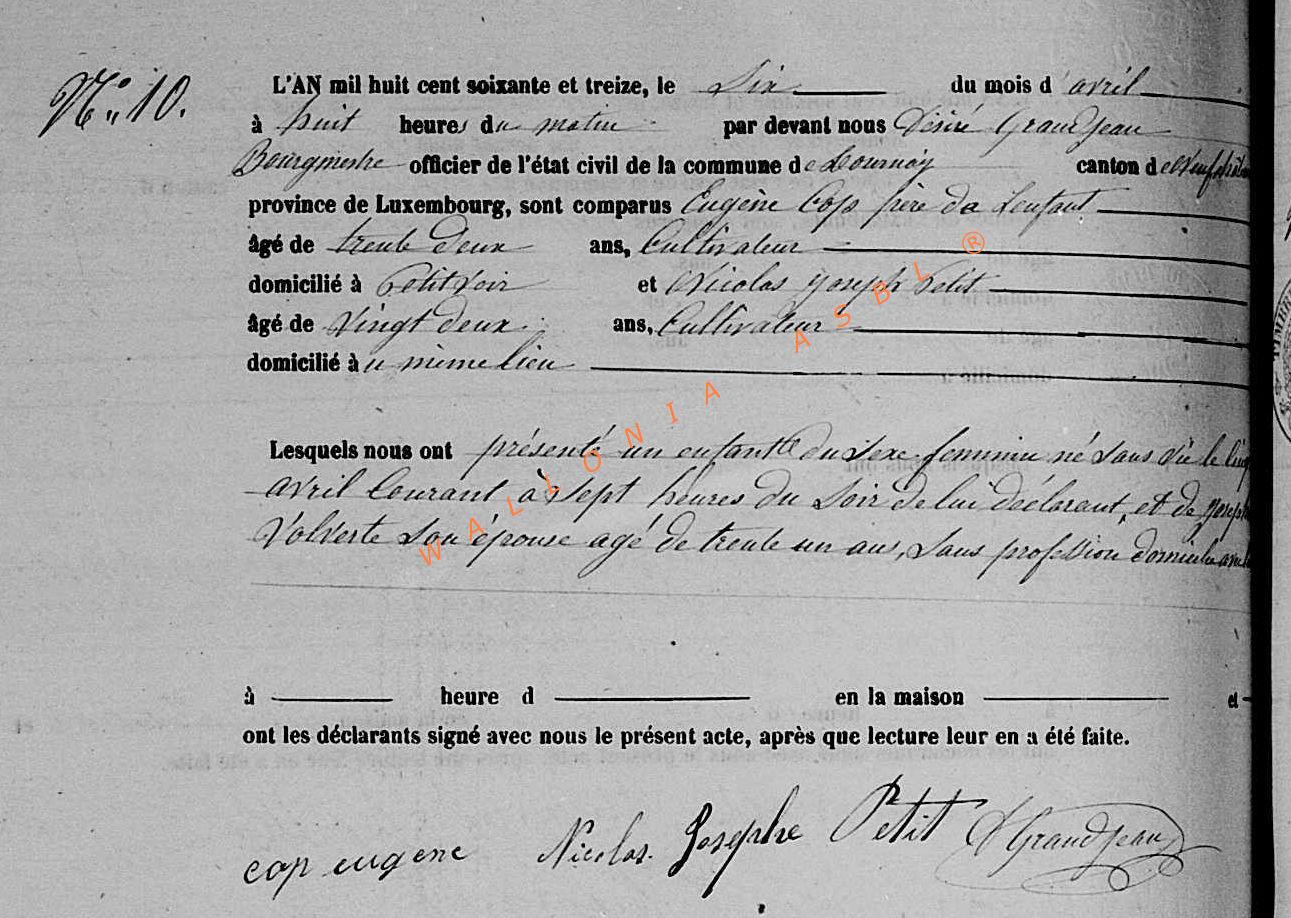 N° 10.
L'AN mil huit cent soixante et treize, le six du mois d'avril
à huit heures du matin par devant nous Désiré Grandjean
Bourgmestre officier de l'état civil de la commune de Tournay canton de Neufchâteau
province de Luxembourg, sont comparus Eugène Cop père da Lenfant
âgé de trente deux ans, Cultivateur
domicilié à Petitvoir et Nicolas Joseph Petit
âgé de Vingt deux ans, Cultivateur
domicilié à u même lieu
Lesquels nous ont présenté un enfant du sexe feminin né sans vie le cinq
avril Courant à sept heures du soir de lui déclarant, et de
Volverte son épouse agé de trente un ans, sans profession
à heure d en la maison et
ont les déclarants signé avec nous le présent acte, après que lecture leur en a été faite.
cop eugene Nicolas Josephe Petit D Grandjean
WALLONIA ASBL ®
TIMBRE